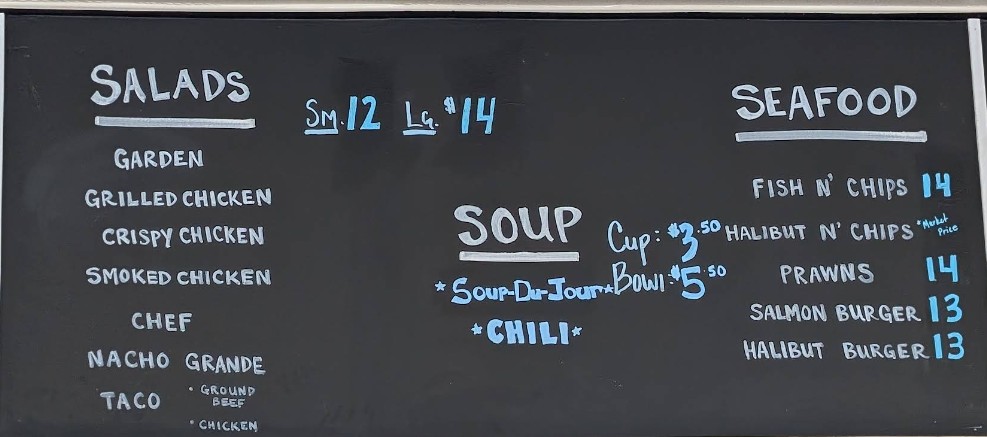 SALADS
SM. 12 LG. $14
GARDEN
GRILLED CHICKEN
CRISPY CHICKEN
SMOKED CHICKEN
CHEF
NACHO GRANDE
TACO
* GROUND
BEEF
* CHICKEN
SOUP
* Soup-Du-Jour *
* CHILI *
Cup: $3.50
Bowl: $5.50
SEAFOOD
FISH N' CHIPS 14
HALIBUT N' CHIPS *Market
Price
PRAWNS 14
SALMON BURGER 13
HALIBUT BURGER 13